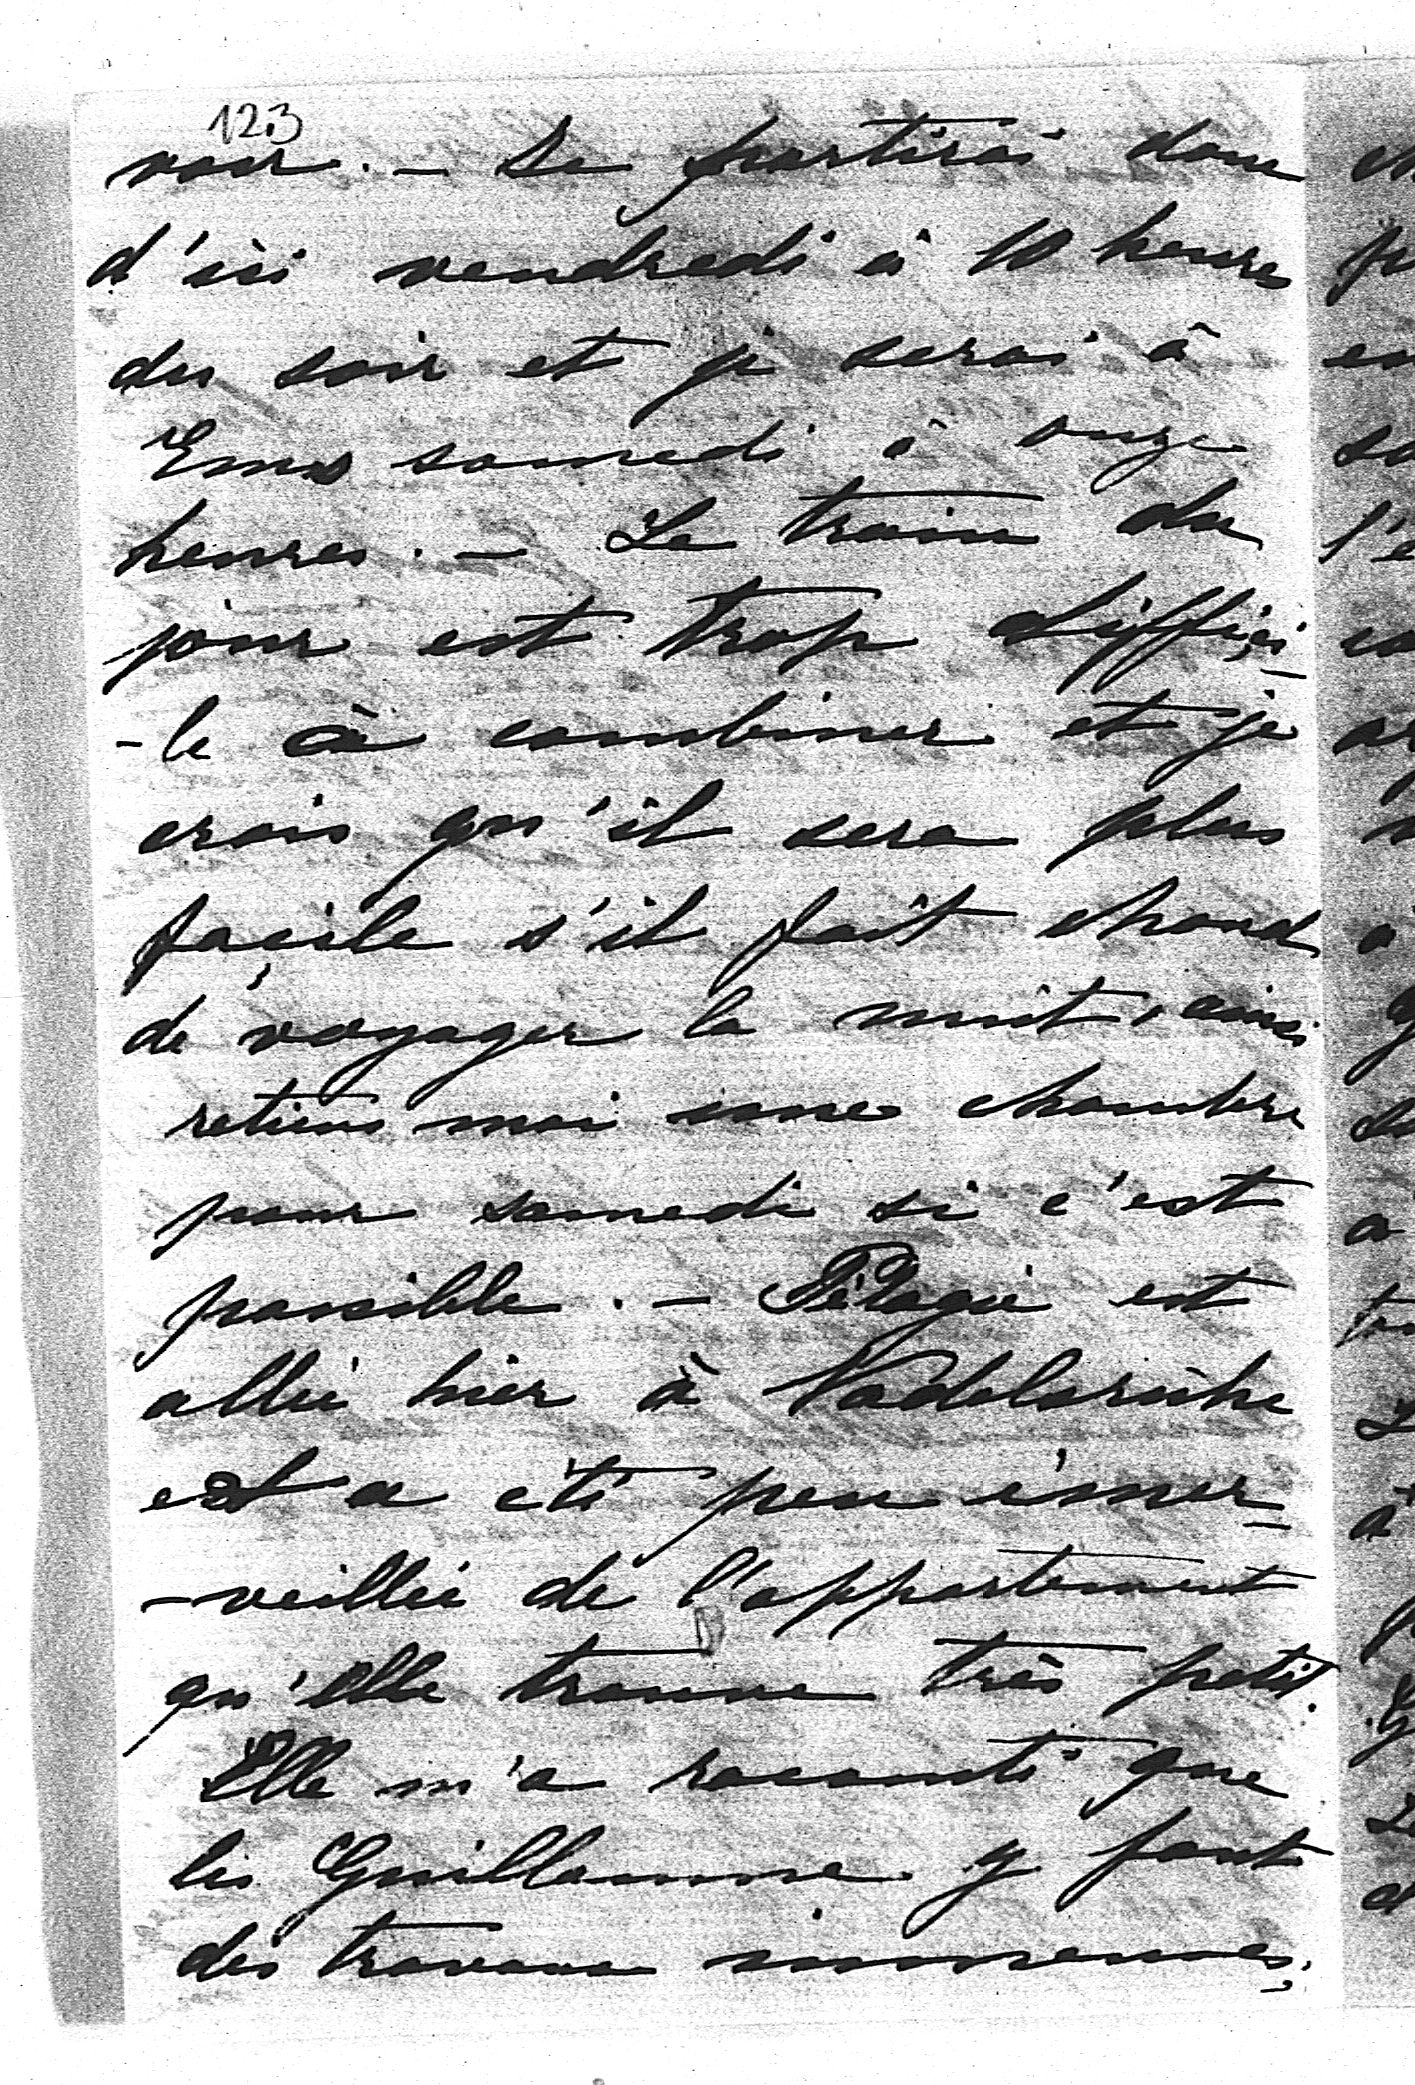 123
voir. - Je partirai donc
d'ici vendredi à 10 heures
du soir et je serai à
Ems samedi à onze
heures. - Le train du
jour est trop diffici-
-le à combiner et je
crois qu'il sera plus
facile s'il fait chaud
de voyager la nuit, ainsi
retiens moi une chambre
pour samedi si c'est
possible. - Pélagie est
allée hier à
est a été peu émer-
-veillée de l'appartement
qu'elle trouve très petit.
Elle m'a raconté que
les Guillaume y font
des travaux immenses;